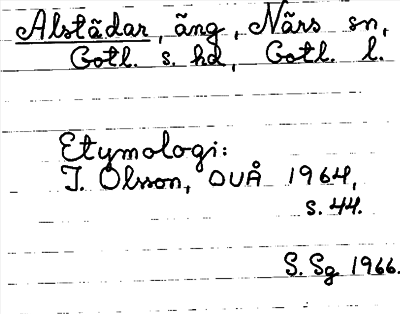 Alstädar, äng, Närs sn,
Gotl. s. hd, Gotl. l.
Etymologi:
I. Olsson, OUÅ 1964,
s. 44.
S. Sg 1966.